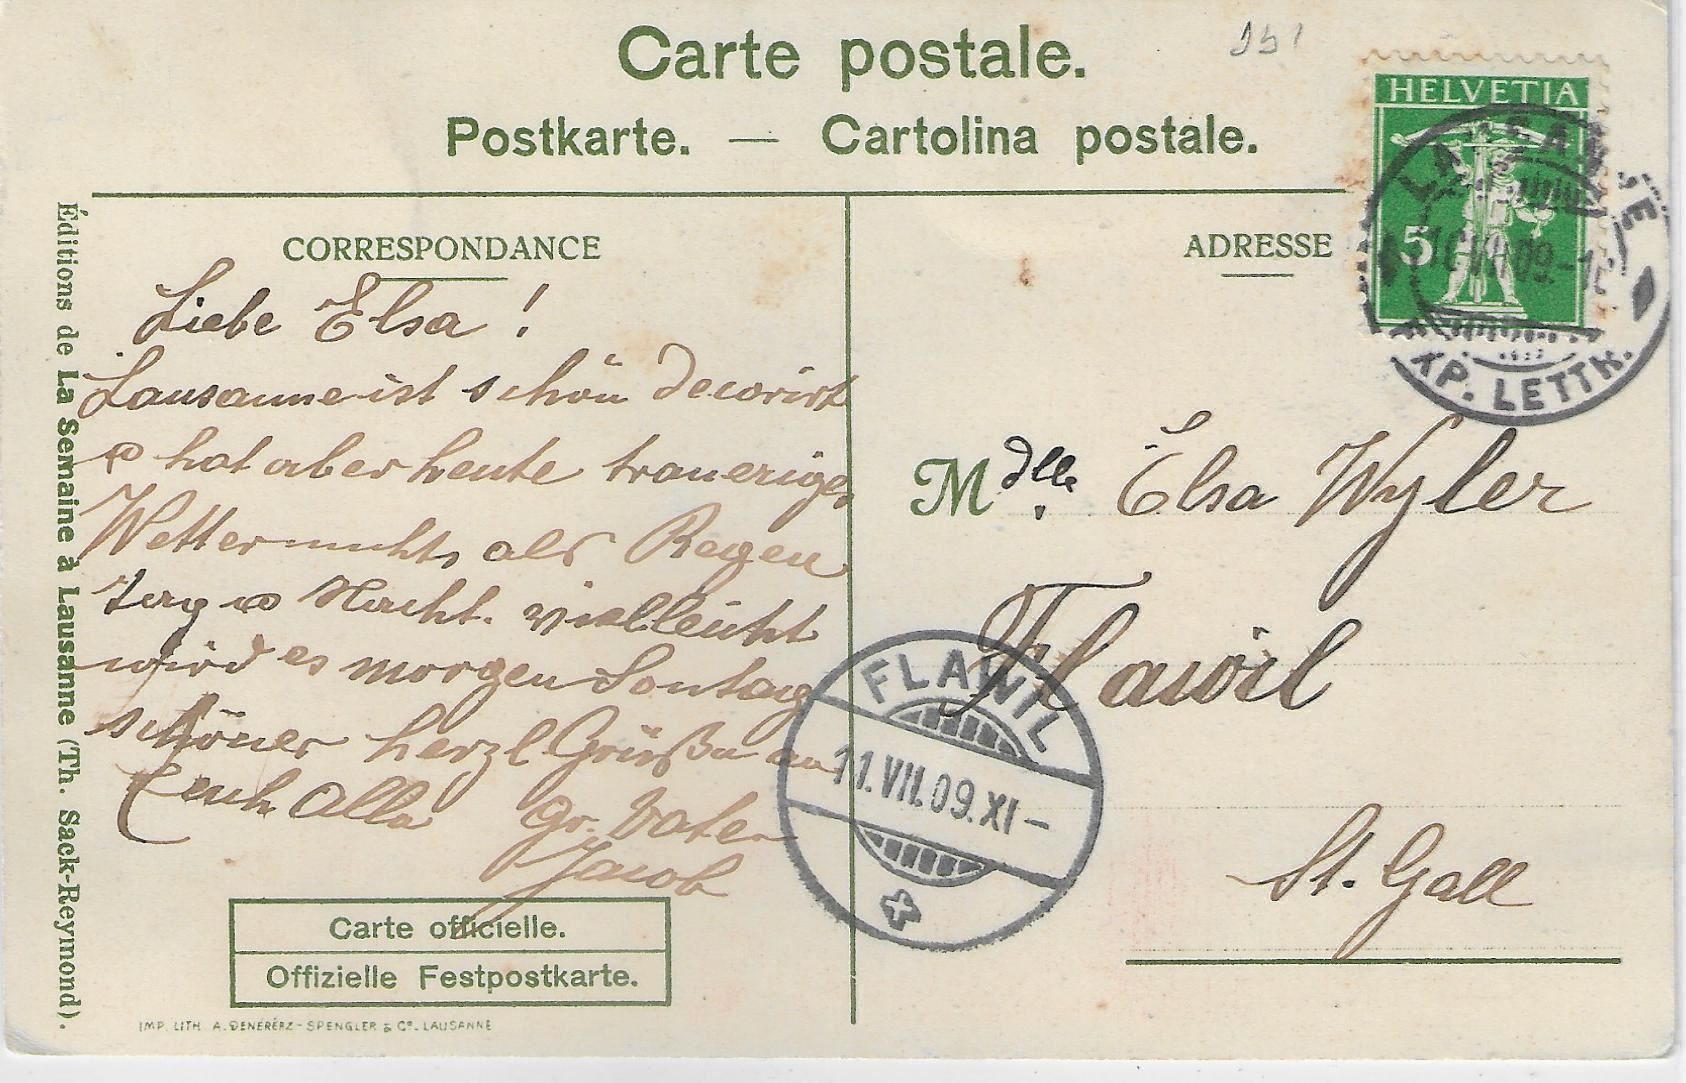 Carte postale.
Postkarte. — Cartolina postale.
HELVETIA
5
LAUSANNE
10.VII.09.-
EXP. LETTR.
CORRESPONDANCE
ADRESSE
Liebe Elsa !
Lausanne ist schön decorirt
& hat aber heute traueriges
Wetter nichts als Regen
Tag & Nacht. vielleicht
wird es morgen Sontag
schöner herzl Grüße an
Euch Alle Gr. Vater
Jacob
Mdlle. Elsa Wyler
Flawil
St. Gall
FLAWIL
11.VII.09.XI–
Carte officielle.
Offizielle Festpostkarte.
IMP. LITH. A. DENÉRÉAZ-SPENGLER & Cº. LAUSANNE
Éditions de La Semaine à Lausanne (Th. Sack-Reymond).